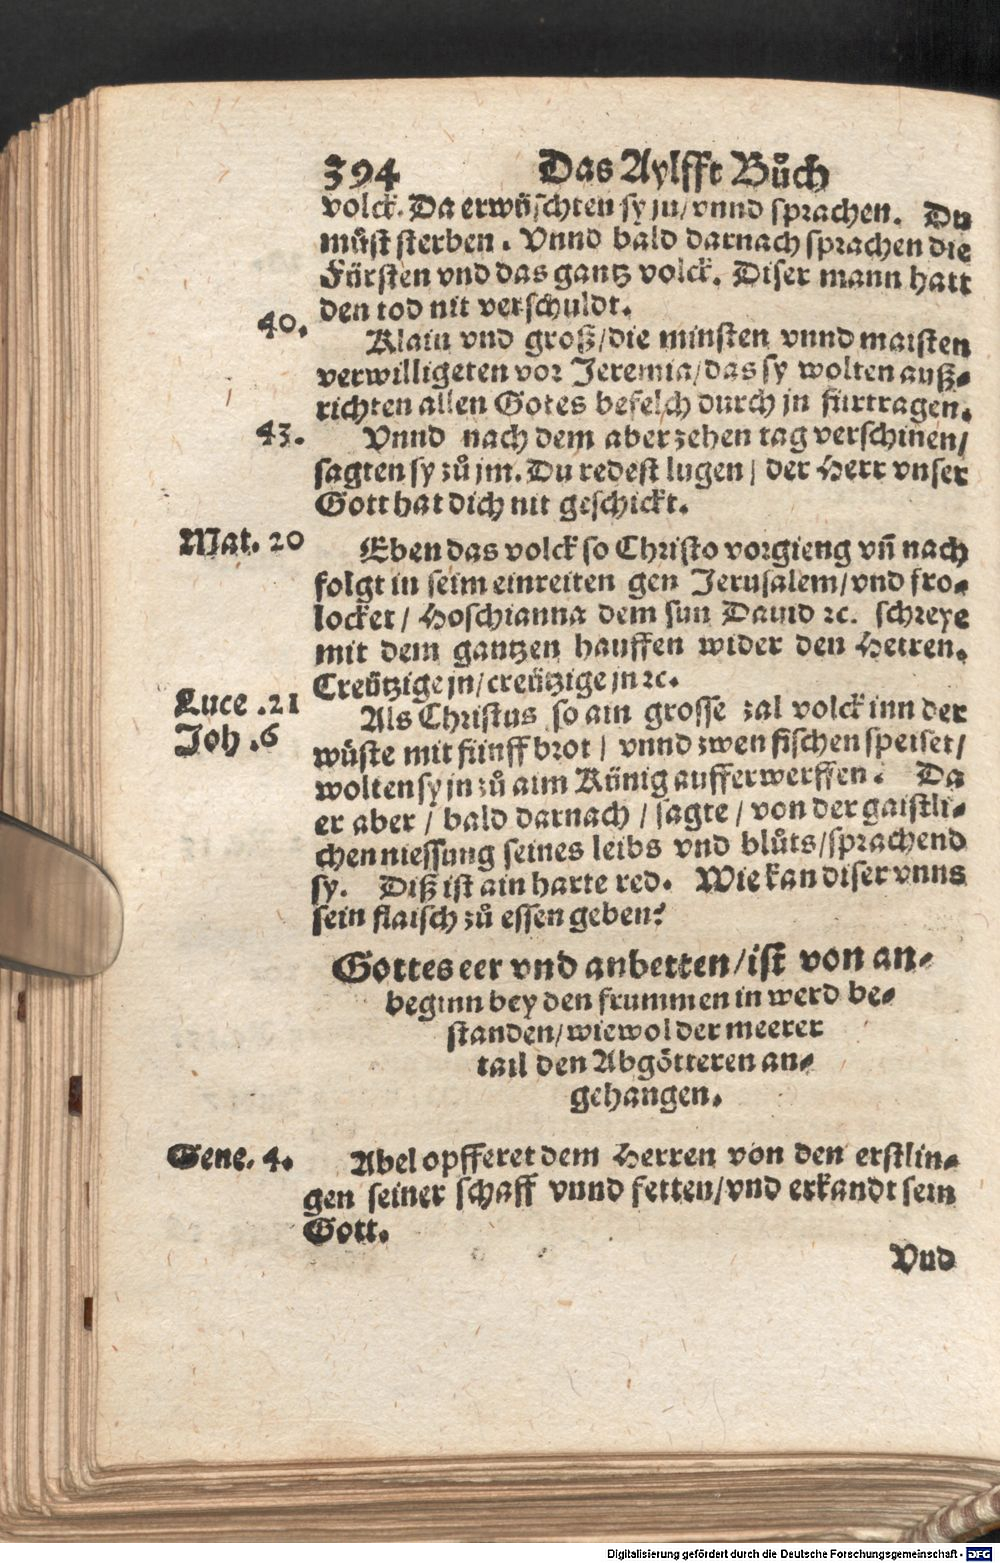 394 Das Aylfft Bůch
volck. Da erwüschten sy jn/ vnnd sprachen. Du
můst sterben. Vnnd bald darnach sprachen die
Fürsten vnd das gantz volck. Diser mann hatt
den tod nit verschuldt.
40.
Klain vnd groß/die minsten vnnd maisten
verwilligeten vor Jeremia/das sy wolten auß⸗
richten allen Gotes befelch durch jn fürtragen.
43. Vnnd nach dem aber zehen tag verschinen/
sagten sy zů jm. Du redest lugen/ der Herr vnser
Gott hat dich nit geschickt.
Mat. 20 Eben das volck so Christo vorgieng vñ nach
folgt in seim einreiten gen Jerusalem/vnd fro⸗
locket/ Hoschianna dem sun Dauid ꝛc. schreye
mit dem gantzen hauffen wider den Herren.
Creützige jn/creützige jn ꝛc.
Luce .21
Als Christus so ain grosse zal volck inn der
Joh .6
wüste mit fünff brot/ vnnd zwen fischen speiset/
wolten sy jn zů aim Künig aufferwerffen. Da
er aber/ bald darnach/ sagte/ von der gaistli⸗
chen niessung seines leibs vnd blůts/sprachend
sy. Diß ist ain harte red. Wie kan diser vnns
sein flaisch zů essen geben?
Gottes eer vnd anbetten/ist von an⸗
beginn bey den frummen in werd be⸗
standen/wiewol der meerer
tail den Abgötteren an⸗
gehangen.
Gene. 4. Abel opfferet dem Herren von den erstlin⸗
gen seiner schaff vnnd fetten/vnd erkandt sein
Gott.
Vnd
Digitalisierung gefördert durch die Deutsche Forschungsgemeinschaft - DFG